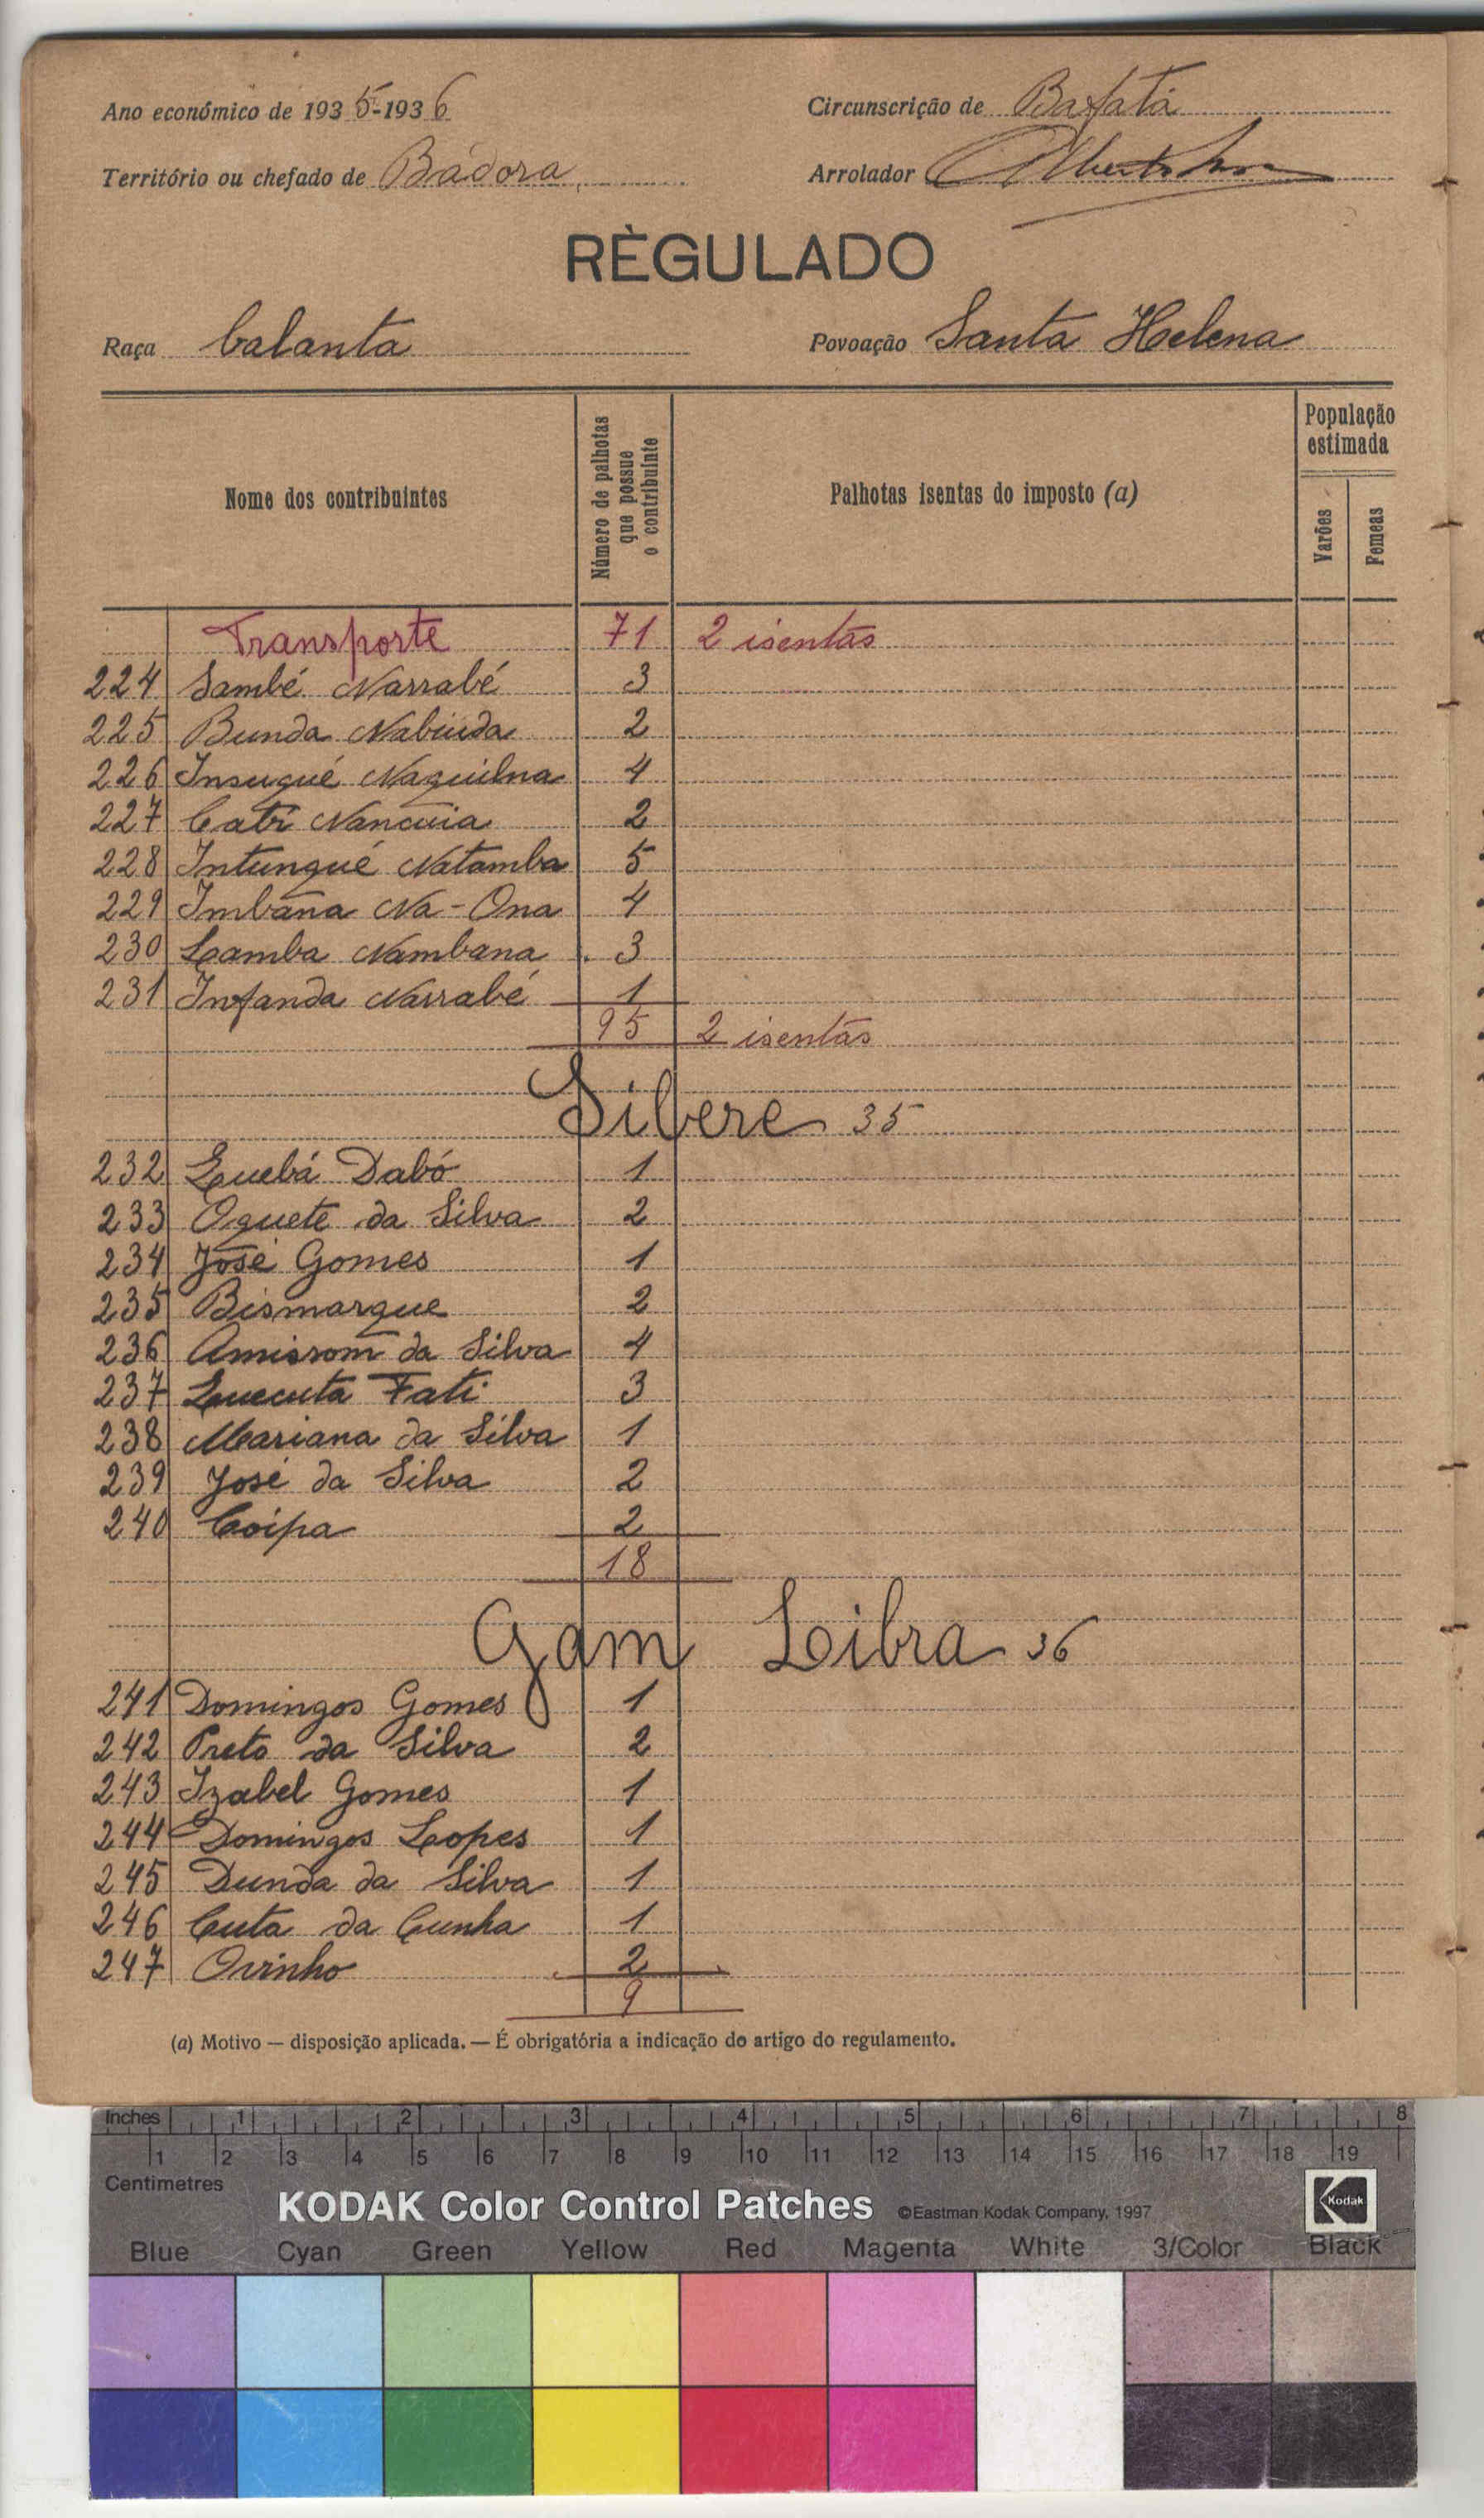 Ano económico de 1935-1936
Circunscrição de Bafatá
Território ou chefado de Bádora
Arrolador
RÈGULADO
Raça balanta
Povoação Santa Helena
Nome dos contribuintes
Número de palhotas que possue o contribuinte
Palhotas isentas do imposto (a)
População estimada
Varões
Femeas
Transporte 71 2 isentas
224 Sambé Narrabé 3
225 Bunda Nabiúda 2
226 Insugué Naguilna 4
227 Catì Nancuia 2
228 Intungué Natamba 5
229 Imbana Na-Ona 4
230 Lamba Nambana 3
231 Infanda Narrabé 1
95 2 isentas
Sibere 35
232 Quebá Dabó 1
233 Oquete da Silva 2
234 José Gomes 1
235 Bismarque 2
236 Amissom da Silva 4
237 Quecuta Fati 3
238 Mariana da Silva 1
239 José da Silva 2
240 Coipa 2
18
Gam Libra 36
241 Domingos Gomes 1
242 Preto da Silva 2
243 Izabel Gomes 1
244 Domingos Lopes 1
245 Dunda da Silva 1
246 Cuta da Cunha 1
247 Ovinho 2
9
(a) Motivo — disposição aplicada. — É obrigatória a indicação do artigo do regulamento.
Inches 1 2 3 4 5 6 7 8
1 2 3 4 5 6 7 8 9 10 11 12 13 14 15 16 17 18 19
Centimetres
KODAK Color Control Patches ©Eastman Kodak Company, 1997 Kodak
Blue Cyan Green Yellow Red Magenta White 3/Color Black